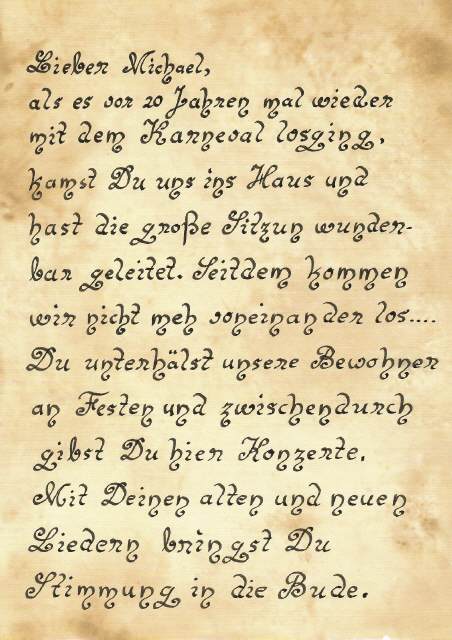 Lieber Michael,
als es vor 20 Jahren mal wieder
mit dem Karneval losging,
kamst Du uns ins Haus und
hast die große Sitzun wunder-
bar geleitet. Seitdem kommen
wir nicht meh voneinander los....
Du unterhälst unsere Bewohner
an Festen und zwischendurch
gibst Du hier Konzerte.
Mit Deinen alten und neuen
Liedern bringst Du
Stimmung in die Bude.